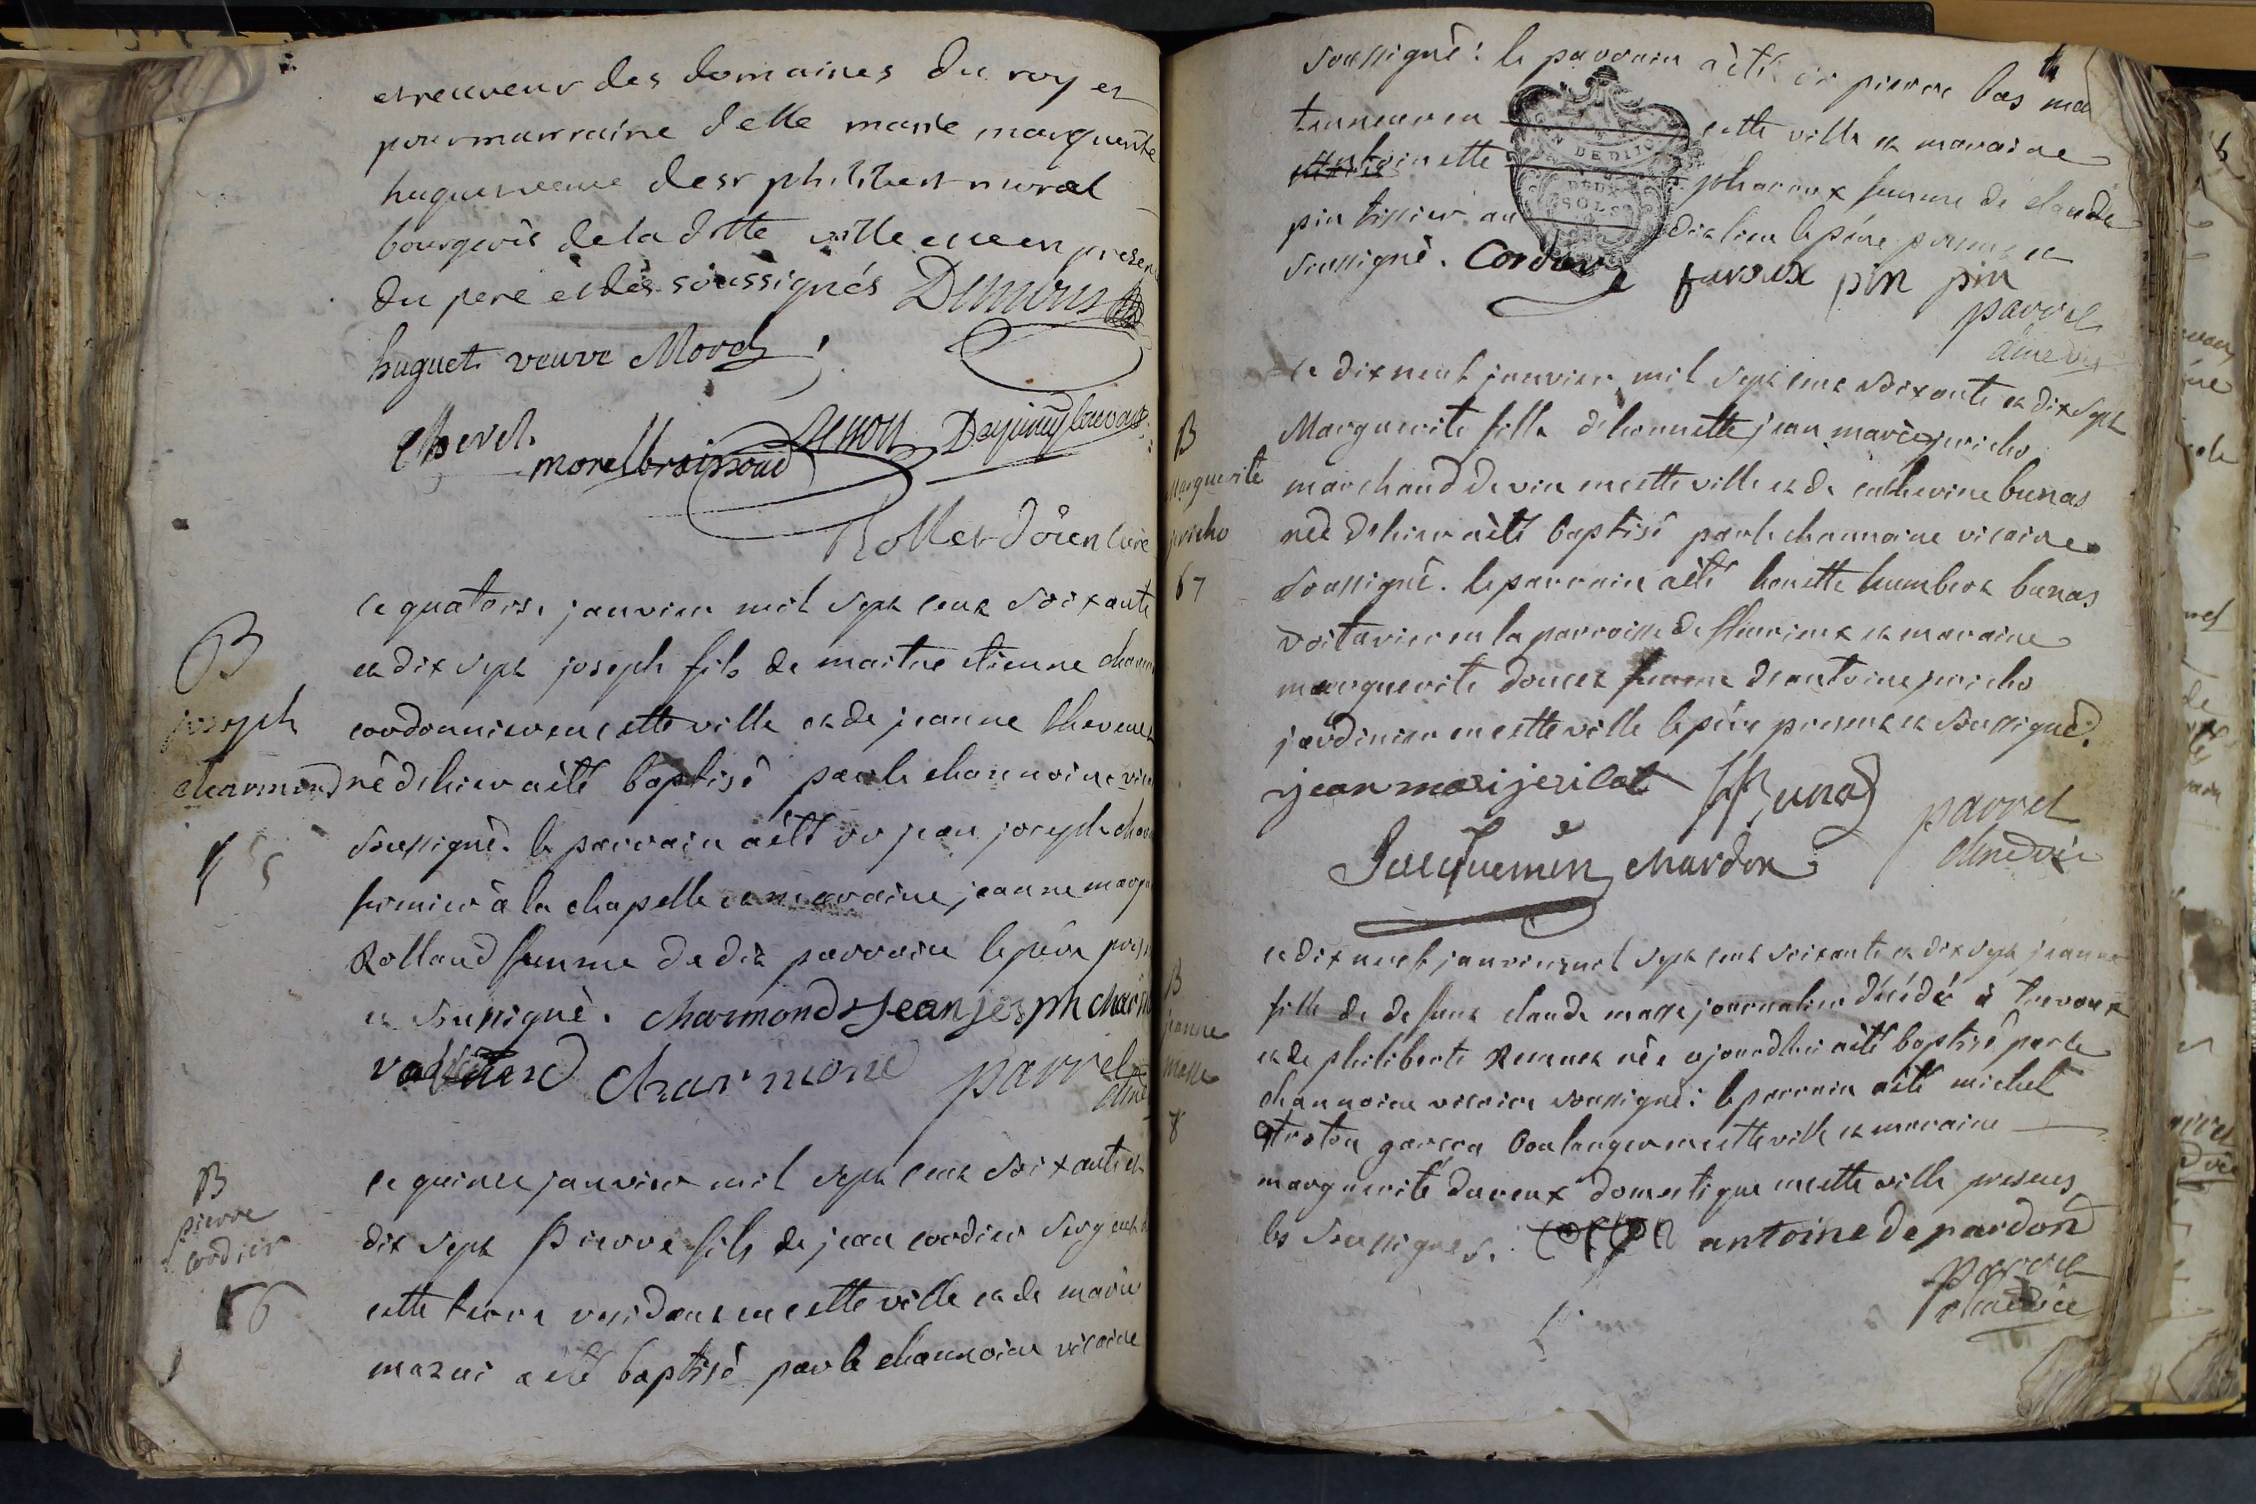 et receveur des domaines du roy et
pour marraine delle marie marguerite
huguet veuve de sr philibert morel
bourgeois de la ditte ville en presence
du pere et des soussignés
huguet veuve Morel
morel brossoud
Rollet doïen curé
B
joseph
charmond
5
ce quatorse janvier mil sept cent soixante
et dix sept joseph fils de maitre etienne
cordonnier en cette ville et de jeanne thevenet
né dhier a èté baptisé par le channoine
soussigné. le parrain a èté sr jean joseph
fermier à la chapelle et maraine jeanne
Rolland femme du dit parrain le père
et soussigné. charmond jean joseph
charmond parrel
B
pierre
cordier
6
ce quinze janvier mil sept cent soixante et
dix sept pierre fils de jean cordier sergent
cette terre residant en cette ville et de marie
mazui a èté baptisé par le channoine vicaire
soussigné: le parrain a èté sr pierre bas
cette ville et maraine
antoinette femme de claude
pin tissier au dit lieu le père present et
soussigné. Cordier pin pin
parrel
B
Marguerite
jericho
7
ce dix neuf janvier mil sept cent soixante et dix sept
Marguerite fille d'honnette jean marie jericho
marchand de vin en cette ville et de catherine bunas
neè d'hier a èté baptisé par le channoine vicaire
soussigné. le parrain a èté honette humbert bunas
voiturier en la parroisse de fleurieux et maraine
marguerite doucet femme d'antoine jericho
jardinier en cette ville le père present et soussigné.
jean mari jericot Bunas parrel
Jacquemin chardon
B
jeanne
masse
8
ce dix neuf janvier mil sept cent soixante et dix sept jeanne
fille de defunt claude masse journalier dècédé à trevoux
et de philiberte née aujourdhui a èté baptisé par le
channoine vicaire soussigné: le parrain a èté michel
garçon boulanger en cette ville et maraine
marguerite domestique en cette ville presents
les soussignés. antoine depardon
parrel